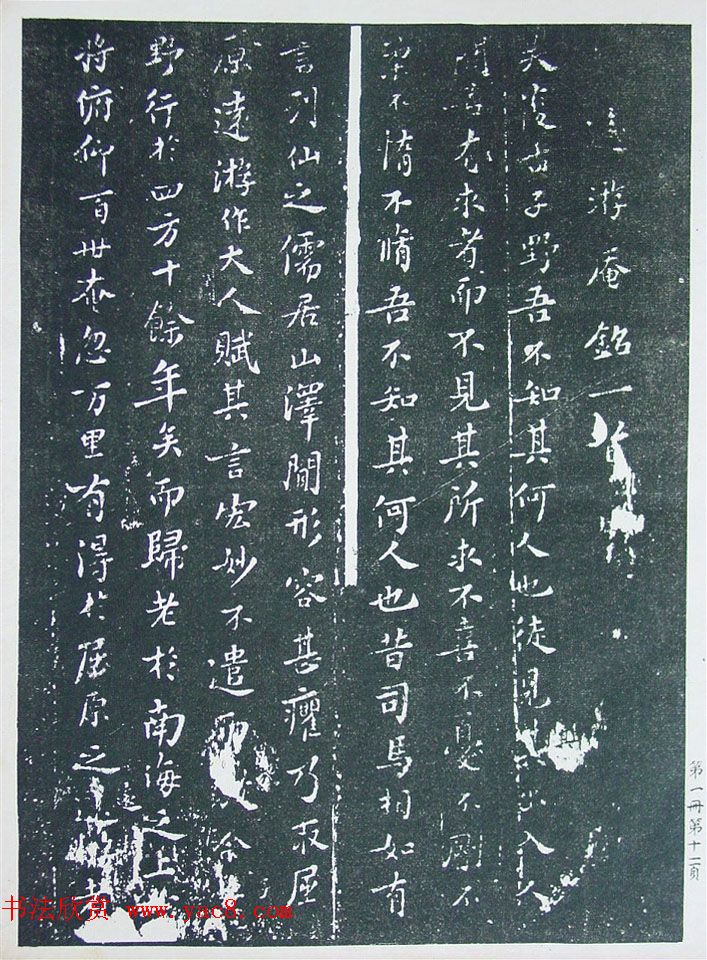 遠游庵銘一首
吳復古子野吾不知其何人也徒見其出入人
間若有求者而不見其所求不喜不憂不剛不
柔不惰不脩吾不知其何人也昔司馬相如有
言列仙之儒居山澤間形容甚癯乃取屈
原遠游作大人賦其言宏妙不遣而放今子
野行於四方十餘年矣而歸老於南海之上必
將俯仰百世奄忽万里有得於屈原之遠游者
第一冊第十二頁
书法欣赏 www.yac8.com